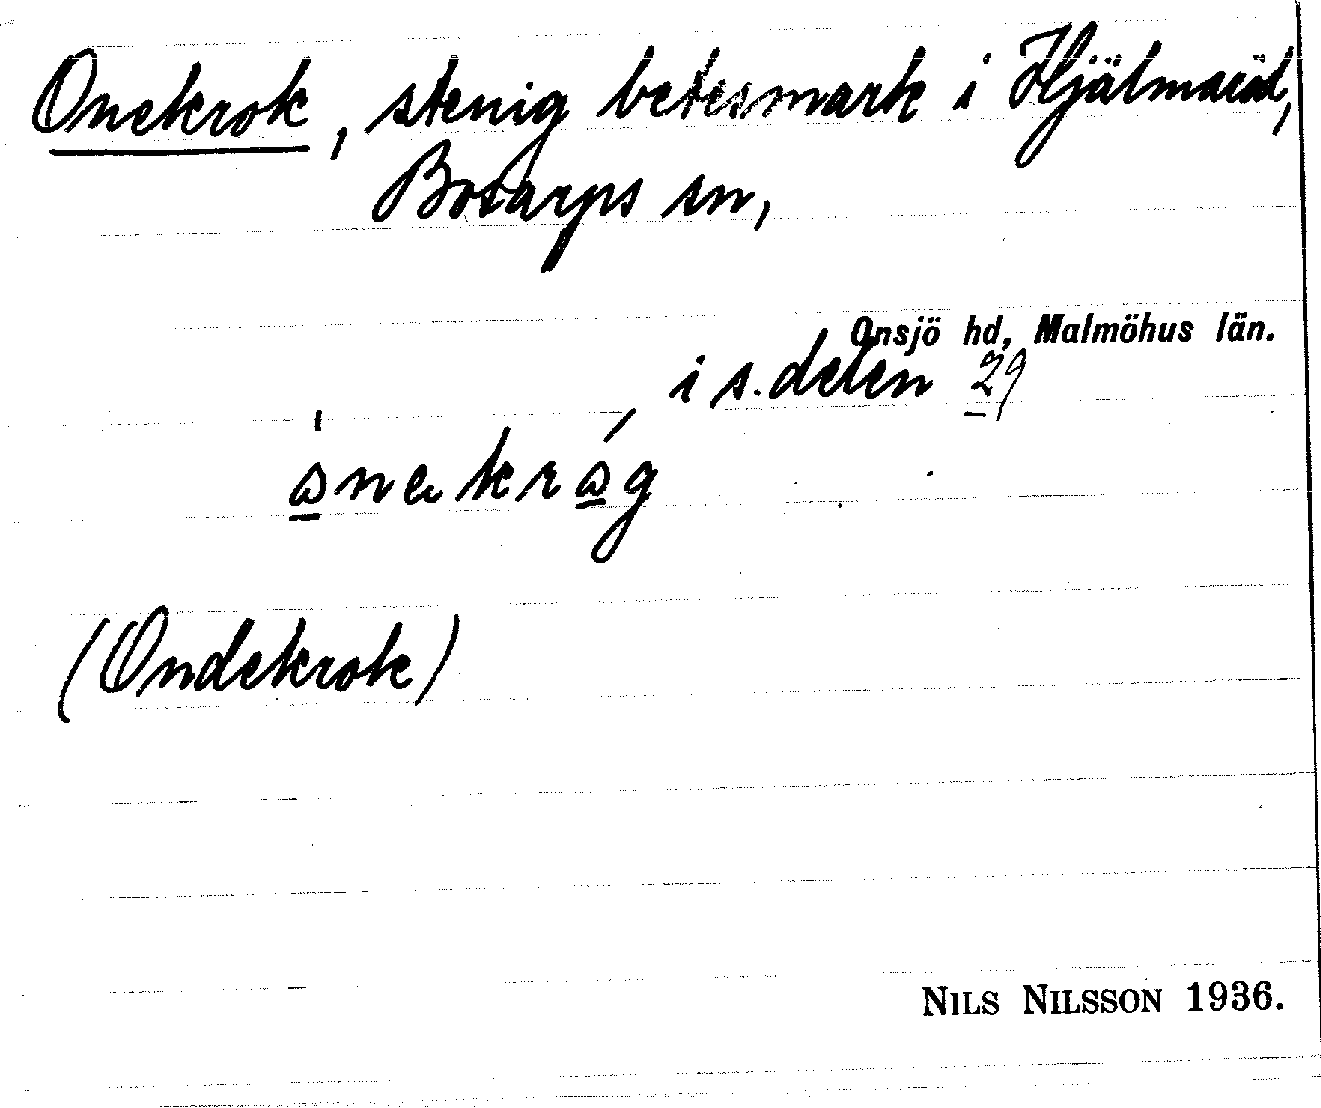 Onekrok, stenig betesmark i Hjälmaröd,
Bosarps sn,
Onsjö hd, Malmöhus län.
i s. delen 29
(Ondekrok)
NILS NILSSON 1936.